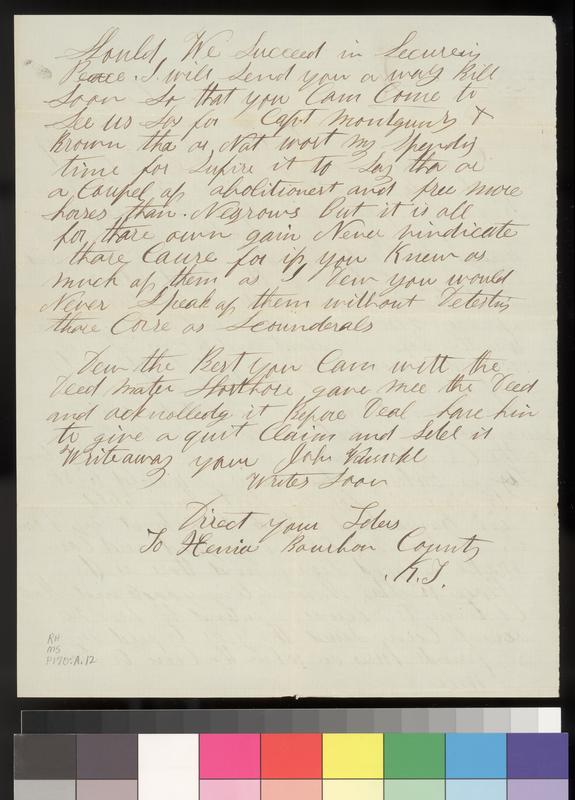 Should We Succeed in Securein
Peace. I will Send you a way Bill
Soon So that you Cam Come to
See us So far Capt Montgumry &
Brown tha ar Nat wort my Spendin
time for Sufise it to Say tha ar
a Coupel af abolitionest and free more
horses than. Negrows but it is all
for thare own gain Never vindicate
thare Cause for if you Knew as
much af them as I Dew you would
Never Speak af them without Detestin
thare Corse as Scounderals
Dew the Best you Cam with the
Deed mater gave mee the Deed
and acknolledg it Before Deal have him
to give a quit Claim and Setel it
Write away your John
Writes Soon
Direct your
To Xenia Bourbon County
K.T.
RH
MS
P170:A.12